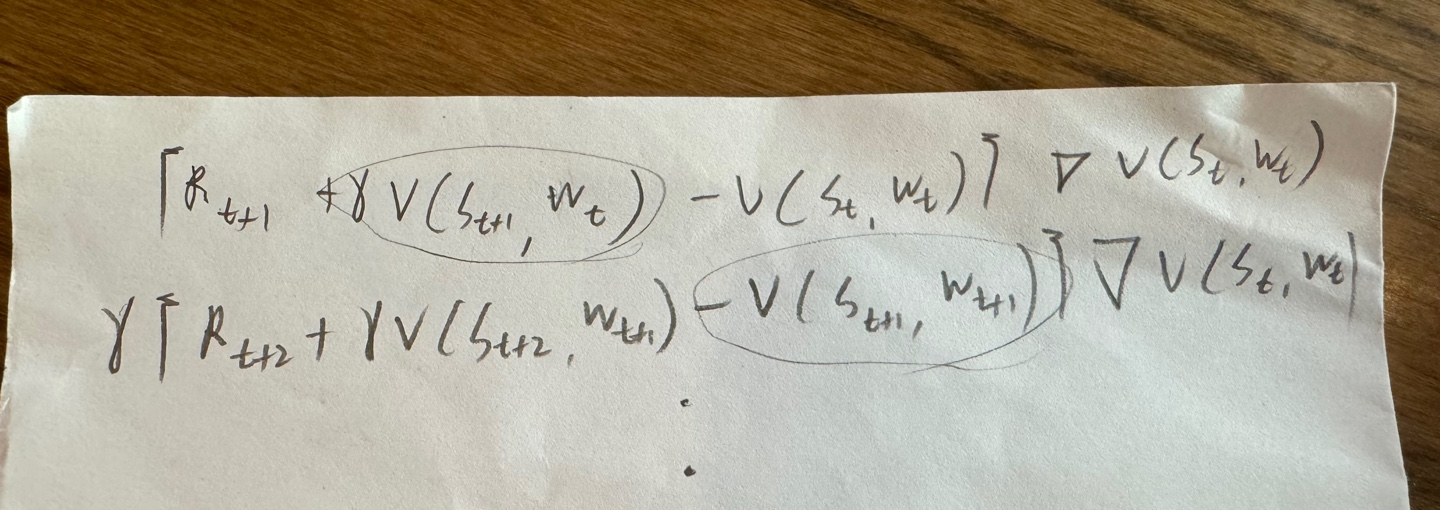 [R_{t+1} + γ V(S_{t+1}, W_t) - V(S_t, W_t)] ∇ V(S_t, W_t)
γ [R_{t+2} + γ V(S_{t+2}, W_{t+1}) - V(S_{t+1}, W_{t+1})] ∇ V(S_t, W_t)
.
.